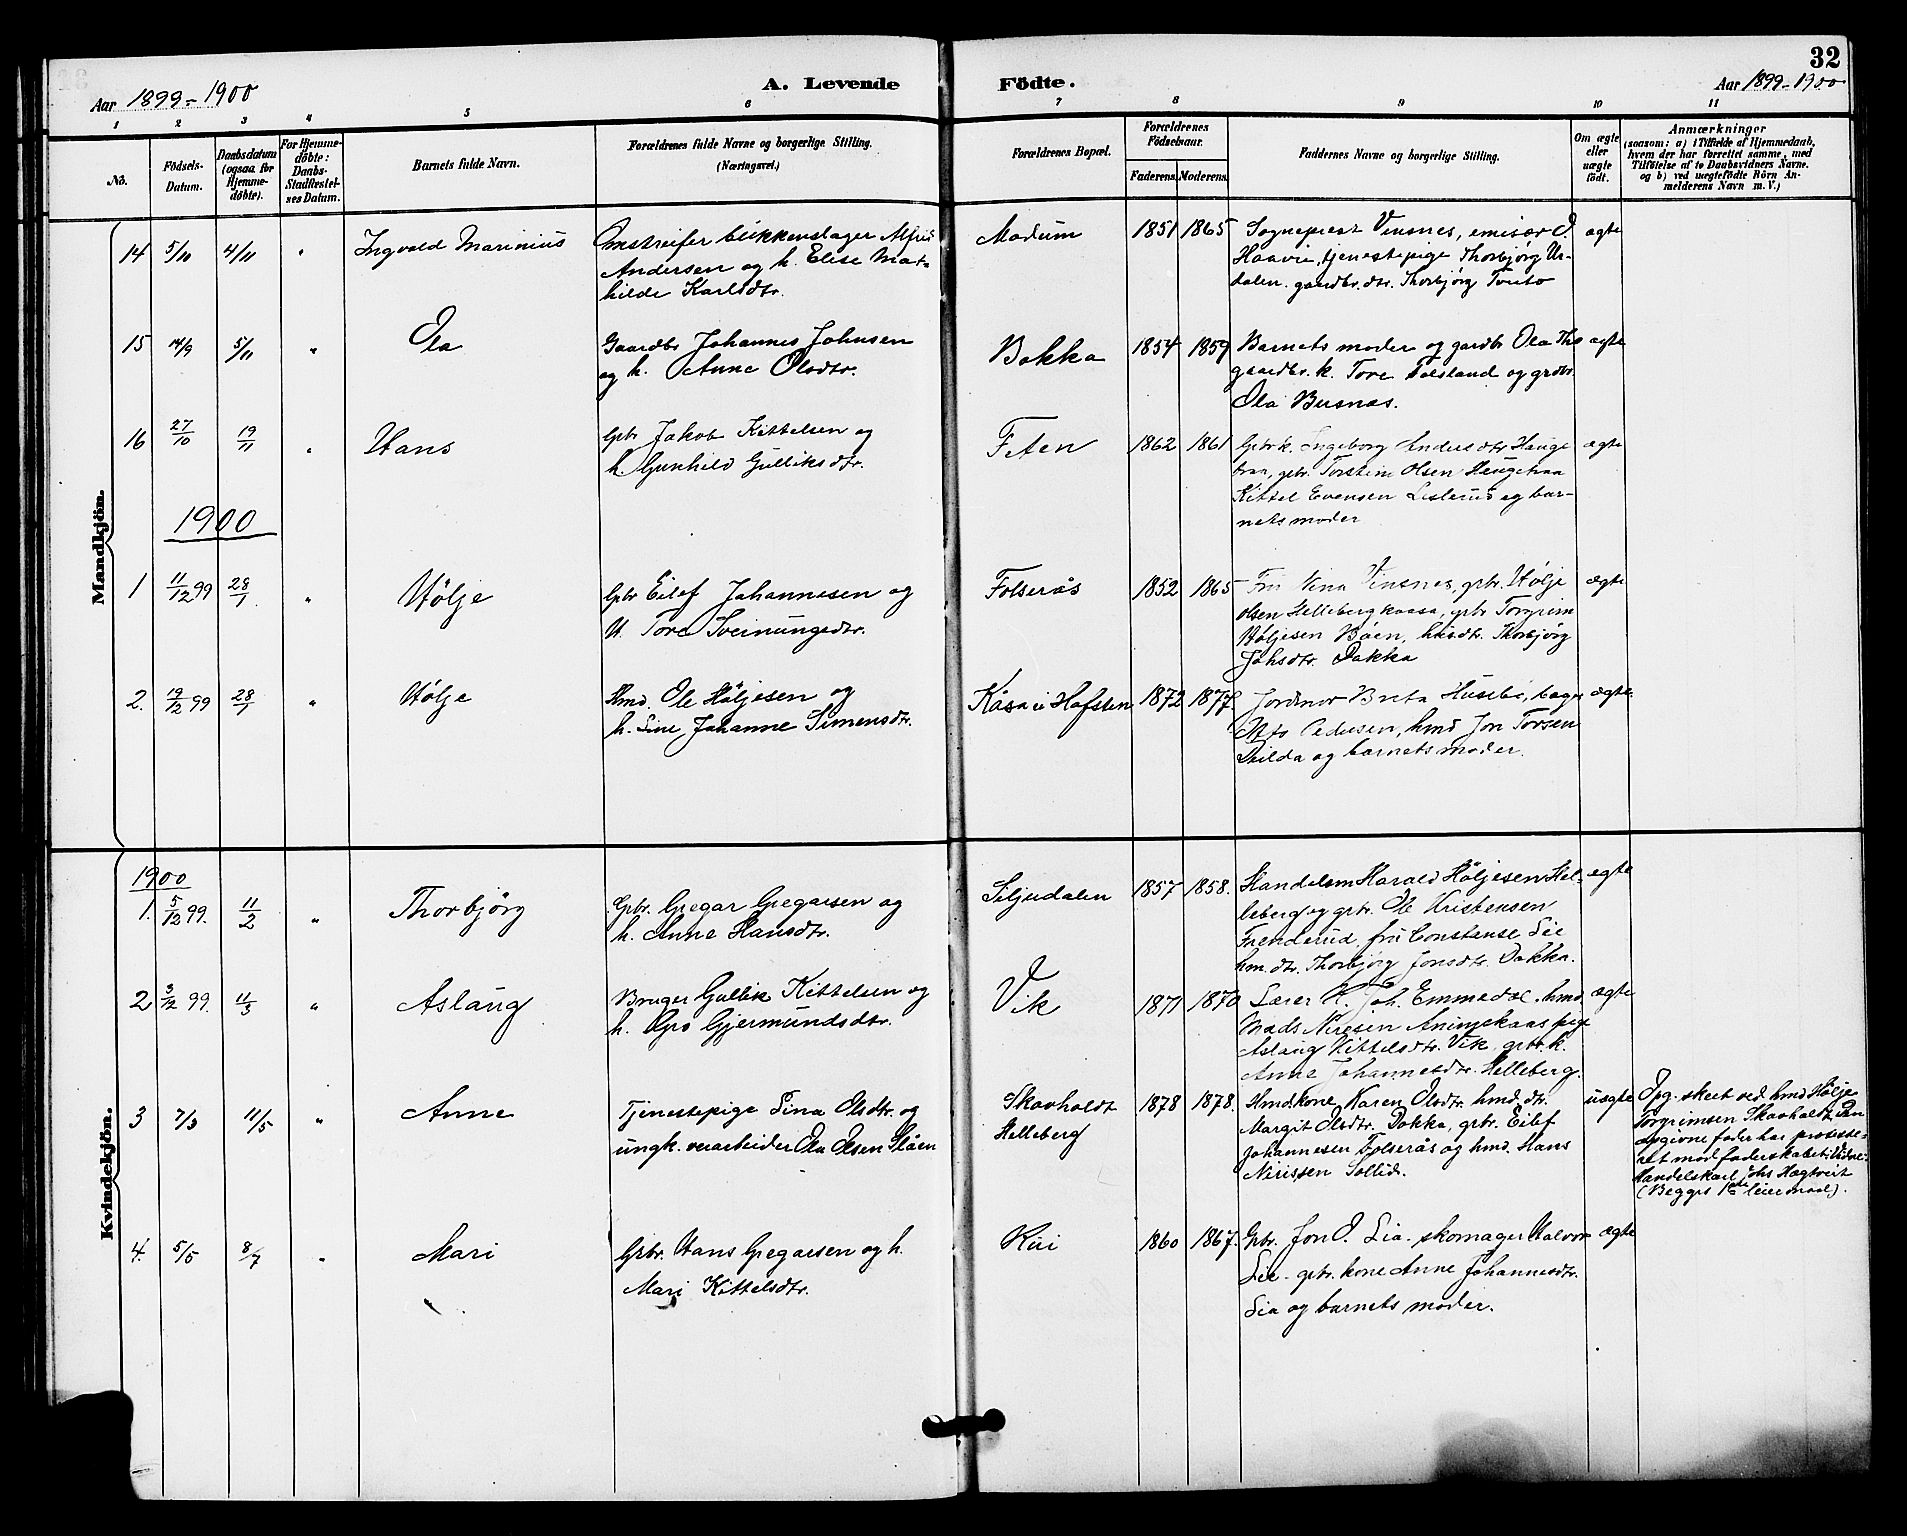 32
Aar 1899-1900
A. Levende Födte.
Aar 1899-1900
1 2 3 4 5 6 7 8 9 10 11
No.
Födsels-Datum.
Daabsdatum (ogsaa for Hjemmedöbte).
For Hjemmedöbte: Daabs-Stadfæstelses Datum.
Barnets fulde Navn.
Forældrenes fulde Navne og borgerlige Stilling.
(Næringsvei.)
Forældrenes Bopæl.
Forældrenes Födselsaar.
Faderens. Moderens.
Faddernes Navne og borgerlige Stilling.
Om ægte eller uægte födt.
Anmærkninger
(saasom: a) i Tilfælde af Hjemmedaab, hvem der har forrettet samme, med Tilföielse af to Daabsvidners Navne. og b) ved uegtefödte Börn Anmelderens Navn m. V.)
Mandkjön.
14 5/10 4/11 " Ingvald Marinius
Omstreifer blikkenslager Alfred
Andersen og h. Elise Mathilde Karlsdtr.
Modum 1851 1865
Sogneprest Vinsnes, emisær O.
Haavie, tjenestepige Thorbjörg Urdalen. gaardbr. dtr. Thorbjörg Tveito
ægte
15 14/9 5/11 " Ola
Gaardbr Johannes Johnsen
og h. Anne Olsdtr.
Bakka 1854 1859
Barnets moder og gaardbr Ola Ths
gaardbr. k. Tore Folsland og grdbr.
Ola Busnæs.
ægte
16 27/10 19/11 " Hans
Gbr Jakob Kittelsen og
h. Gunhild Gulliksdtr.
Feten 1862 1861
Gbr k. Ingeborg Andersdtr Haugetraa, gbr. Torstein Olsen Haugetraa
Kittel Evensen Listerud og barnets moder
ægte
1900
1 11/12 99 28/1 " Hölje
Gbr Eilef Johannesen og
h. Tore Sveinungsdtr.
Folserås 1852 1865
Fru Nina Vinsnes, gbr. Hölje
Olsen Hellebergkaasa, gbr Torgrim
Höljesen Böen, husdtr. Thorbjörg
Johsdtr. Dakka
ægte
2. 19/12 99 28/1 " Hölje
Hmd. Ole Höljesen og
h. Sine Johanne Simensdtr.
Kåsa u Hafsten 1872 1877.
Jordmor Brita Husebö, bager
Otto Pedersen, hmd Jon Torsen
Hilda og barnets moder.
ægte.
Kvindekjön.
1900
1. 5/12 99. 11/2 " Thorbjörg
Gbr. Gregar Gregarsen og
h. Anne Hansdtr.
Siljudalen 1857 1858.
Handelsm Harald Höljesen Helleberg og gbr. Ole Kristensen
Frenderud, fru Constanse Lie
hm. dtr. Thorbjörg Jonsdtr. Dakka.
ægte
2 3/12 99. 11/3 " Aslaug
Bruger Gullik Kittelsen og
h. Gro Gjermundsdtr.
Vik 1871 1870
Lærer K. Joh. Emmedal. hmd
Mads Nirisen Aninskaas pige
Aslaug Kittelsdtr. Vik, gbr. k.
Anne Johannesdtr. Helleberg.
ægte
3 7/3 11/5 " Anne
Tjenestepige Sina Olsdtr. og
ungk. veiarbeider Ola Olsen Slåen
Skavholdt
Helleberg
1878 1878.
Hmdkone Karen Olsdtr. hmd. dtr.
Margit Olsdtr. Dakka, gbr. Eilef
Johannesen Folserås og hmd. Hans
Nirisen Sollid.
uægte
Opg. skeet ved hmd Hölje
Torgrimsen Skavholdt. Den
opgivne fader har protesteret mod faderskabet. Vidne:
Handelskarl Johs Hægtveit
(Begges 1ste leiermaal).
4. 5/5 8/7 " Mari
Gbr. Hans Gregarsen og h.
Mari Kittelsdtr.
Kiri 1860 1867.
Gbr. Jon O. Lia. skomager Halvor
Lie. gbr. kone Anne Johannesdtr.
Lia og barnets moder.
ægte